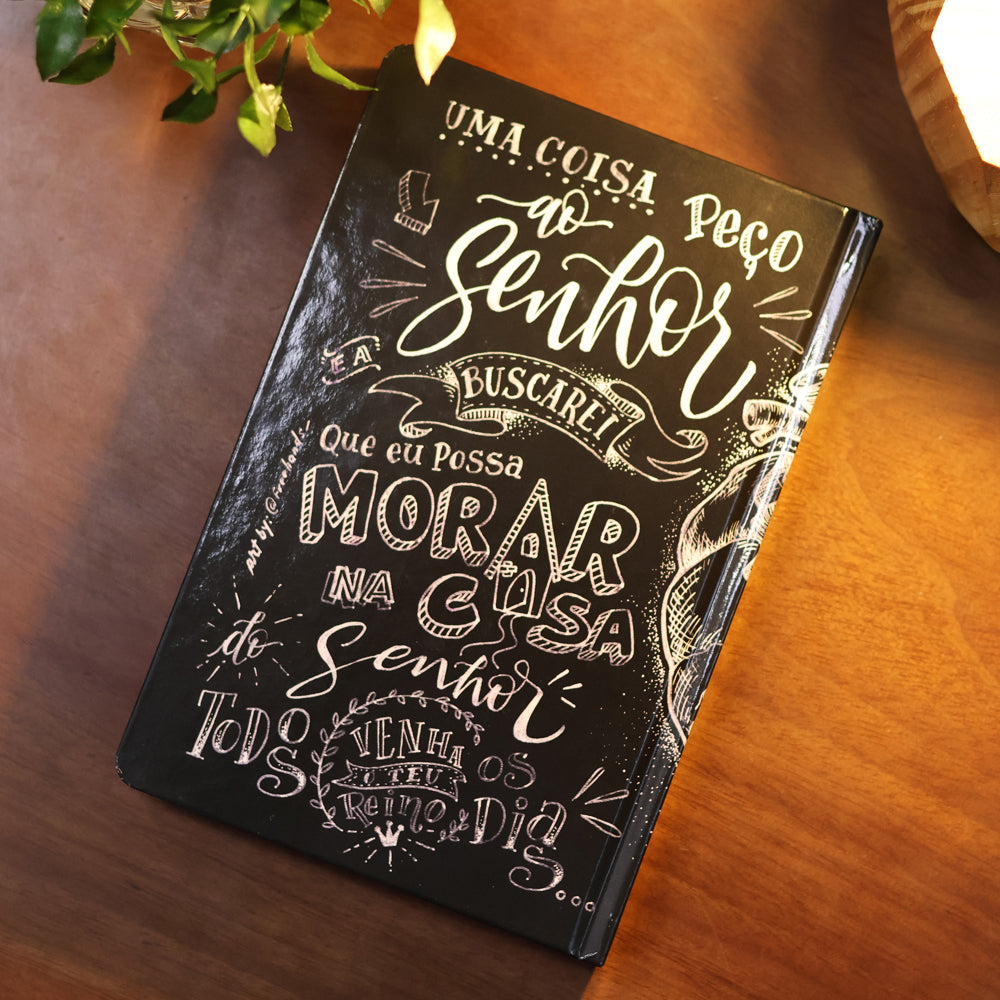 UMA COISA
PEÇO
ao
Senhor
E A
BUSCAREI
QUE EU POSSA
MORAR
NA CASA
do
Senhor
TODOS
OS
DIAS...
VENHA
O TEU
REINO
art by: @freehand